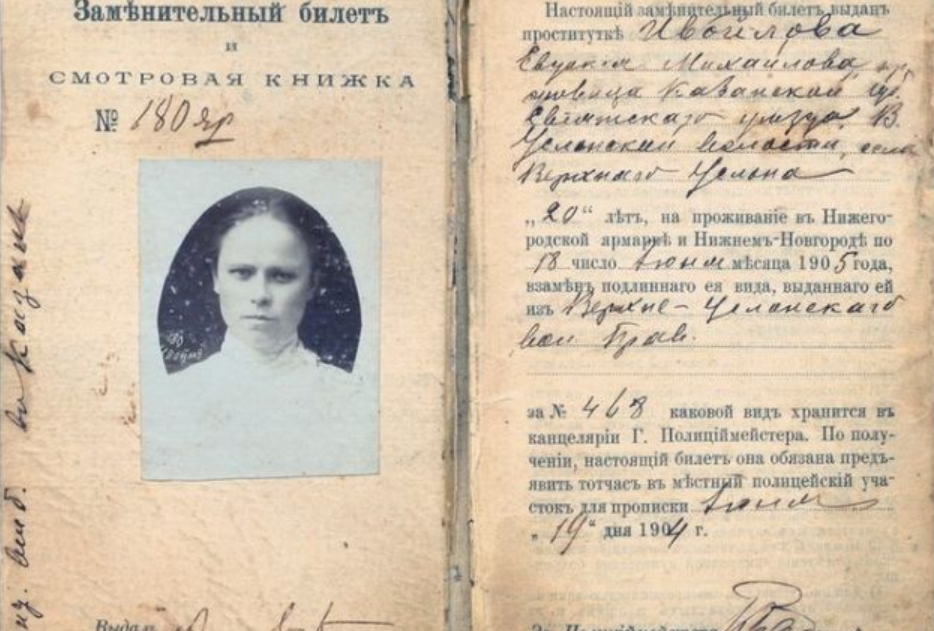 Замѣнительный билетъ
и
СМОТРОВАЯ КНИЖКА
№ 180 яр
Выдан
Настоящій замѣнительный билетъ выданъ
проституткѣ Ивойлова
Михайлова
Казанской губ.
уѣзда, В.
Услонской волости, села
Верхняго Услона
„20“ лѣтъ, на проживаніе въ Нижего-
родской ярмаркѣ и Нижнемъ-Новгородѣ по
18 число Іюня мѣсяца 1905 года,
взамѣнъ подлиннаго ея вида, выданнаго ей
изъ Верхне-Услонскаго
вол. Прав.
за № 468 каковой видъ хранится въ
канцеляріи Г. Полиціймейстера. По полу-
ченіи, настоящій билетъ она обязана предъ-
явить тотчасъ въ мѣстный полицейскій уча-
стокъ для прописки Іюня
„19“ дня 1904 г.
За Полиціймейстера